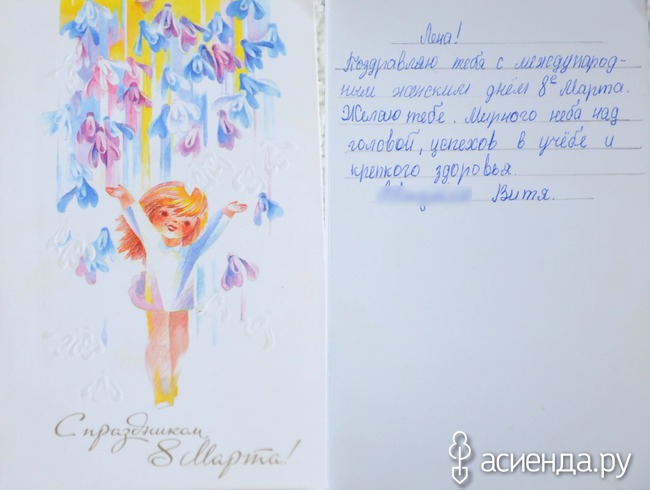 С праздником
8 Марта!
Лена!
Поздравляю тебя с международ-
ным женским днём 8е Марта.
Желаю тебе. Мирного неба над
головой, успехов в учёбе и
крепкого здоровья.
Витя.
асиенда.ру